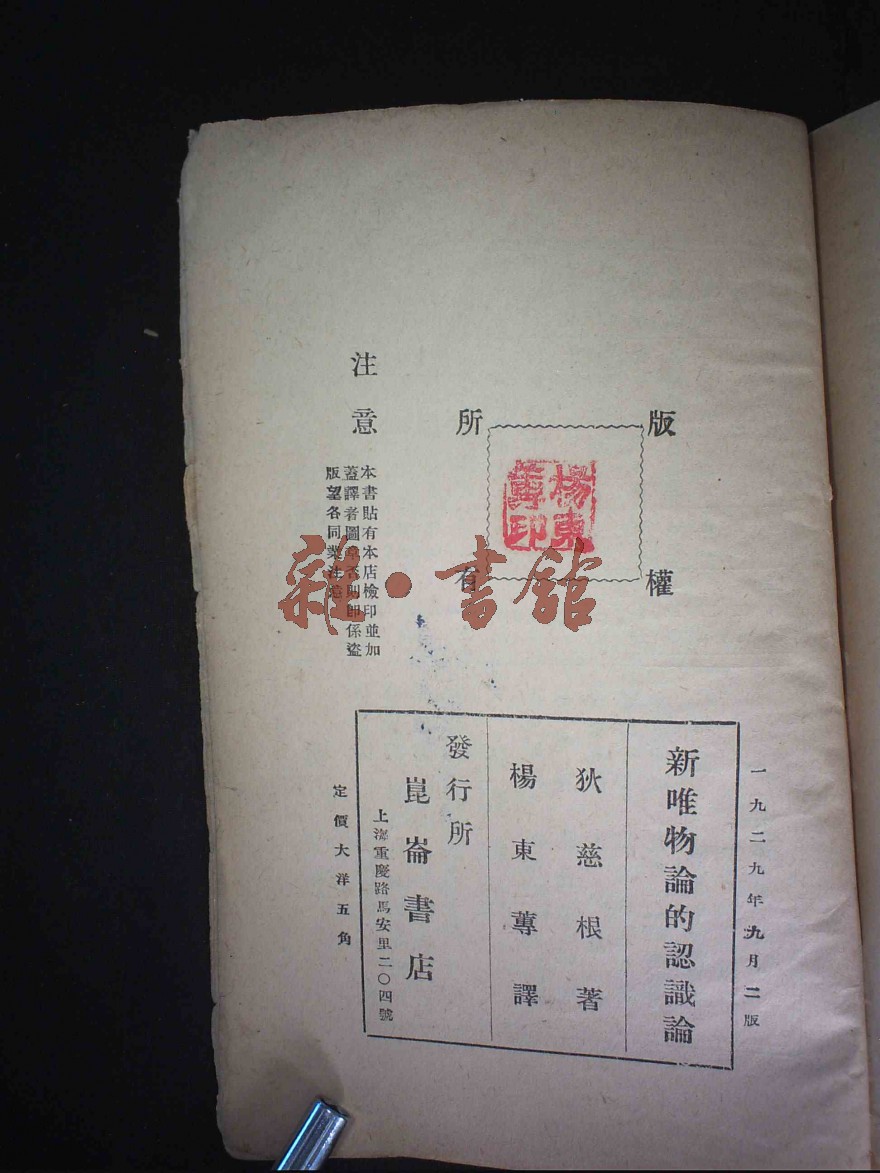 版權所有
楊東蓴印
注意
本書貼有本店檢印並加
蓋譯者圖章否則卽係盜
版望各同業注意
一九二九年九月二版
新唯物論的認識論
狄慈根著
楊東蓴譯
發行所
崑崙書店
上海重慶路馬安里二〇四號
定價大洋五角
雜·書館